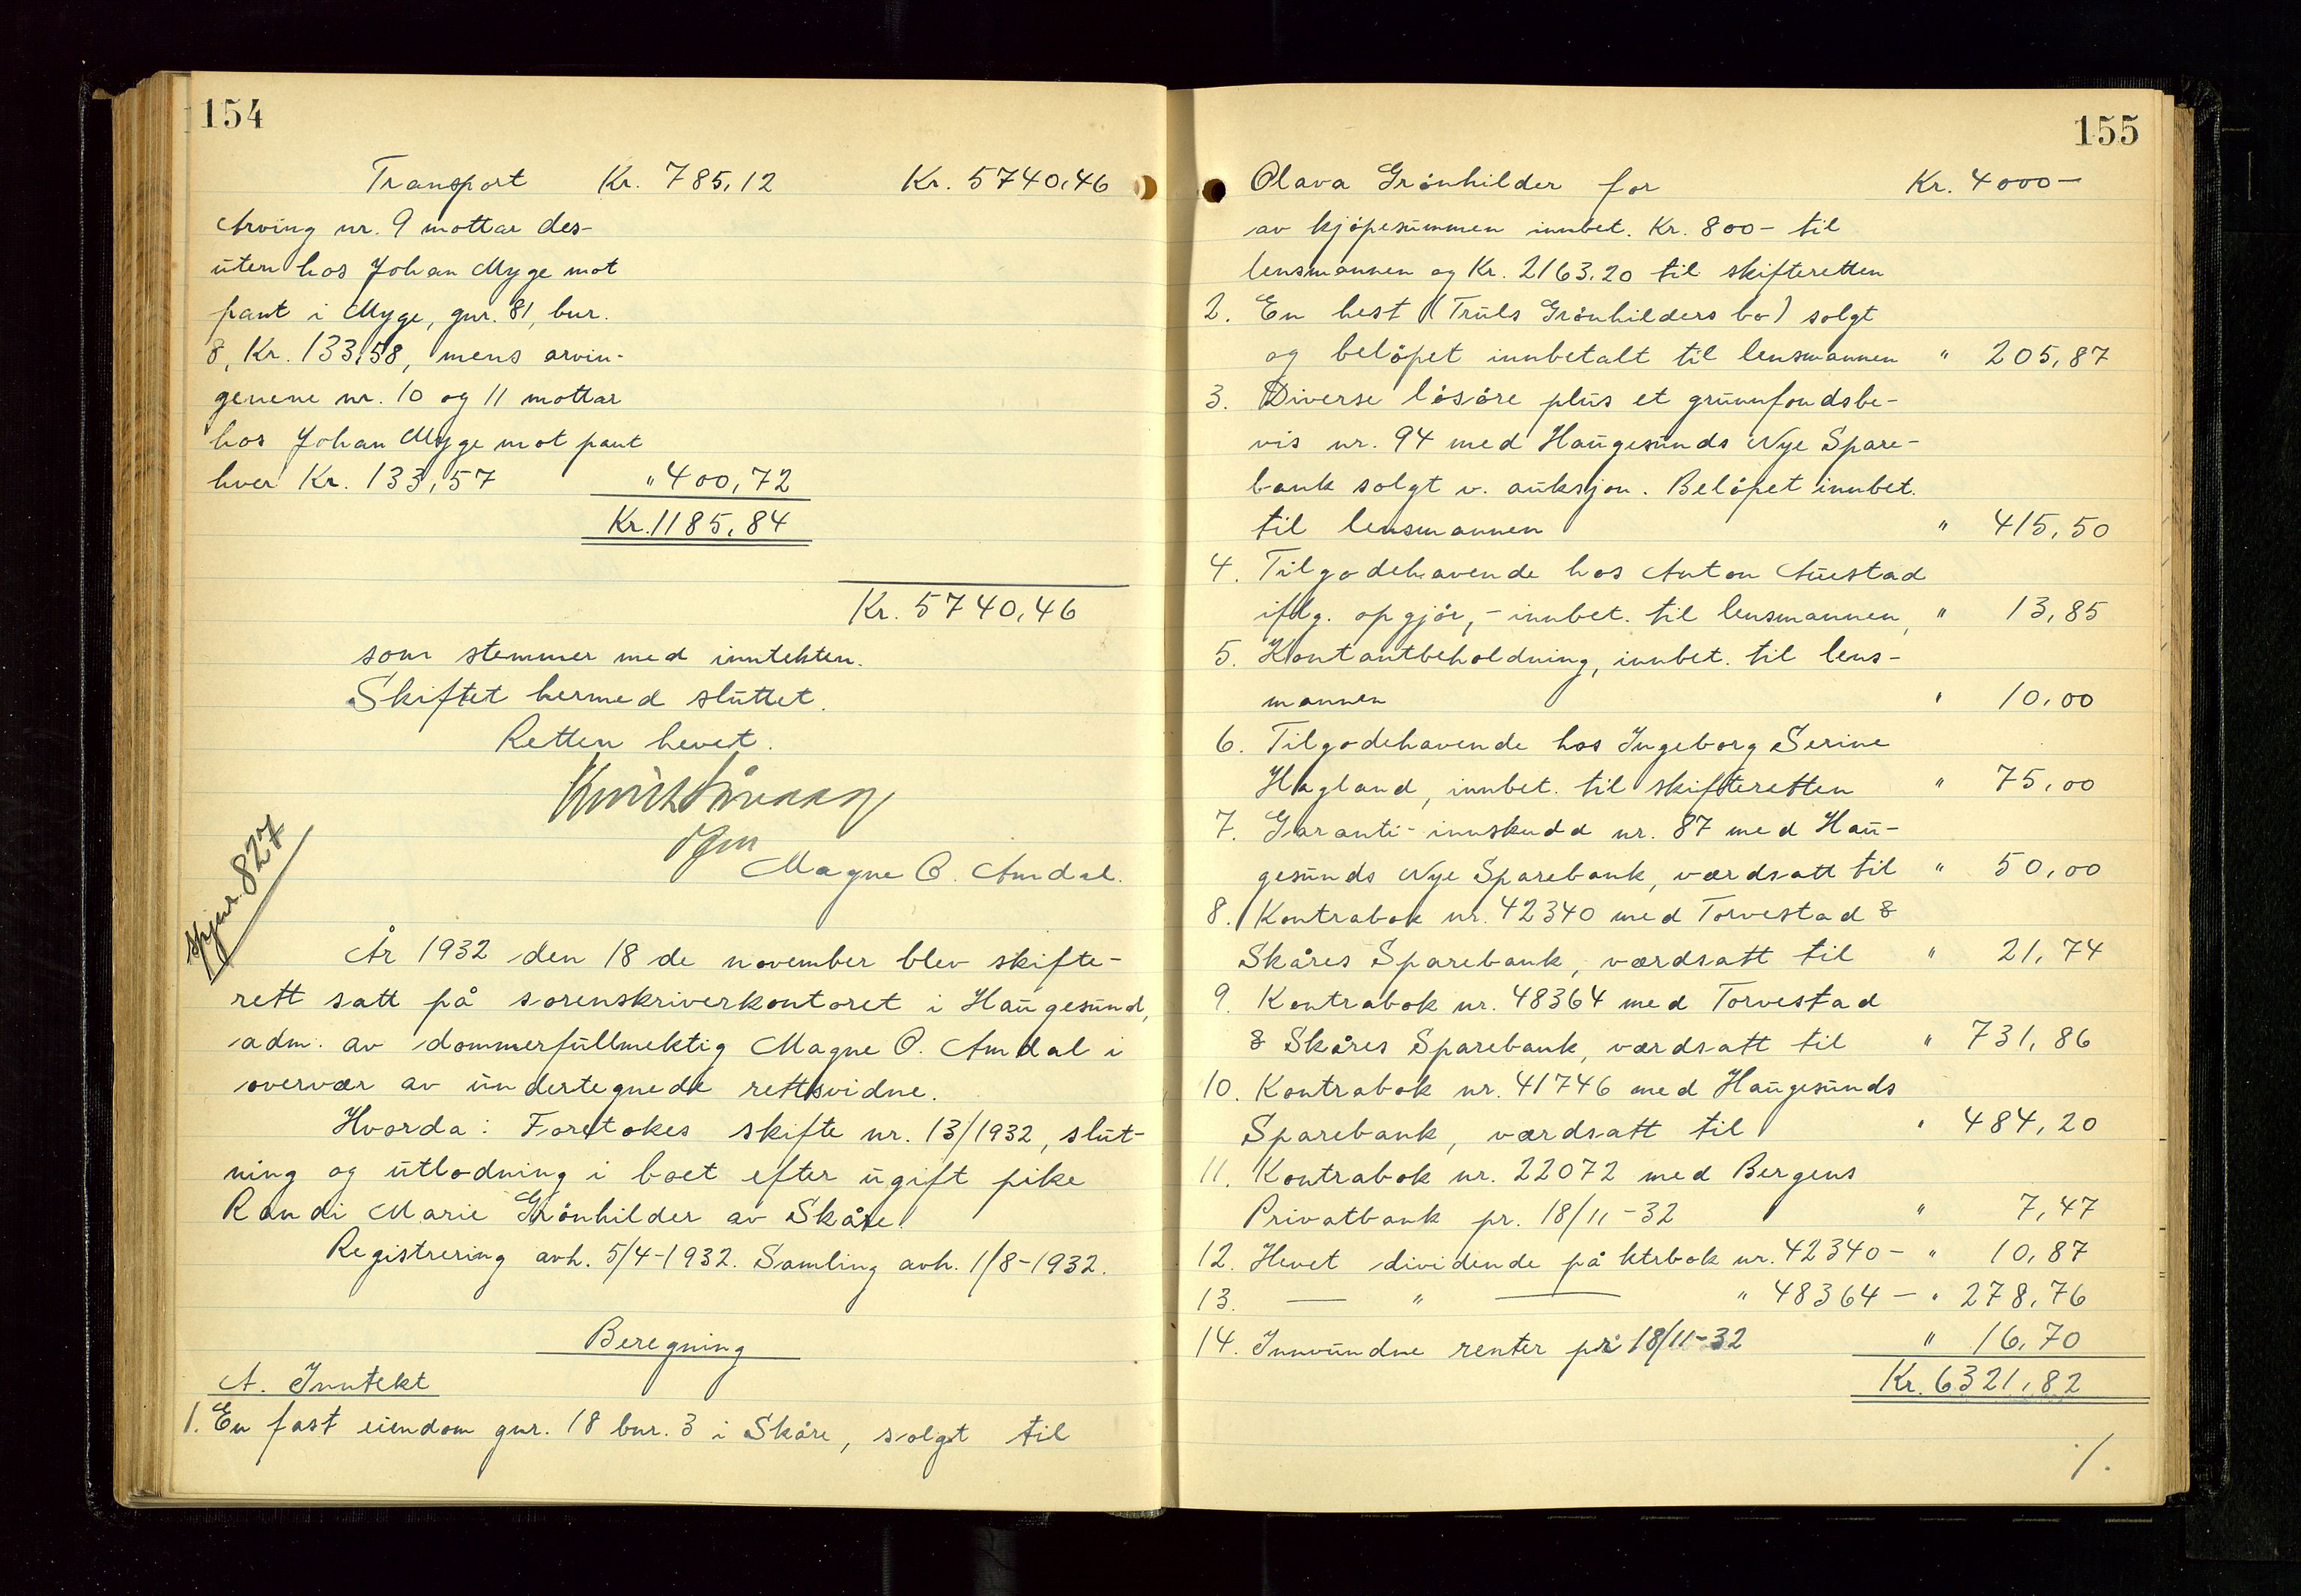 154
Transport Kr. 785,12 Kr. 5740,46
Arving nr. 9 mottar des-
uten hos Johan Myge mot
pant i Myge, gnr. 81, bnr.
8, Kr. 133,58, mens arvin-
genene nr. 10 og 11 mottar
hos Johan Myge mot pant
hver Kr. 133,57 " 400,72
Kr. 1185,84
Kr. 5740,46
som stemmer med inntekten.
Skiftet hermed sluttet.
Retten hevet.
Magne O. Amdal.
Skjnr. 827
År 1932 den 18 de november blev skifte-
rett satt på sorenskriverkontoret i Haugesund,
adm. av dommerfullmektig Magne O. Amdal i
overvær av undertegnede rettsvidne.
Hvorda: Foretokes skifte nr. 13/1932, slut-
ning og utlodning i boet efter ugift pike
Randi Marie Grönhilder av Skåre.
Registrering avh. 5/4-1932. Samling avh. 1/8-1932.
Beregning
A. Inntekt
1. En fast eiendom gnr. 18 bnr. 3 i Skåre, solgt til
155
Olava Grönhilder for Kr. 4000-
av kjöpesummen innbet. Kr. 800- til
lensmannen og Kr. 2163.20 til skifteretten
2. En hest (Truls Grönhilders bo) solgt
og belöpet innbetalt til lensmannen " 205,87
3. Diverse lösöre plus et grunnfondsbe-
vis nr. 94 med Haugesunds Nye Spare-
bank solgt v. auksjon. Belöpet innbet.
til lensmannen " 415,50
4. Tilgodehavende hos Anton Auestad
iflg. opgjör, - innbet. til lensmannen, " 13,85
5. Kontantbeholdning, innbet. til lens-
mannen " 10,00
6. Tilgodehavende hos Ingeborg Serine
Hagland, innbet. til skifteretten " 75,00
7. Garanti-innskudd nr. 87 med Hau-
gesunds Nye Sparebank, værdsatt til " 50,00
8. Kontrabok nr. 42340 med Torvestad &
Skåres Sparebank, værdsatt til " 21,74
9. Kontrabok nr. 48364 med Torvestad
& Skåres Sparebank, værdsatt til " 731,86
10. Kontrabok nr. 41746 med Haugesunds
Sparebank, værdsatt til " 484,20
11. Kontrabok nr. 22072 med Bergens
Privatbank pr. 18/11-32 " 7,47
12. Hevet dividende på ktrbok nr. 42340- " 10,87
13. — " — " 48364- " 278,76
14. Innvundne renter pr. 18/11-32 " 16,70
Kr. 6321,82
./.